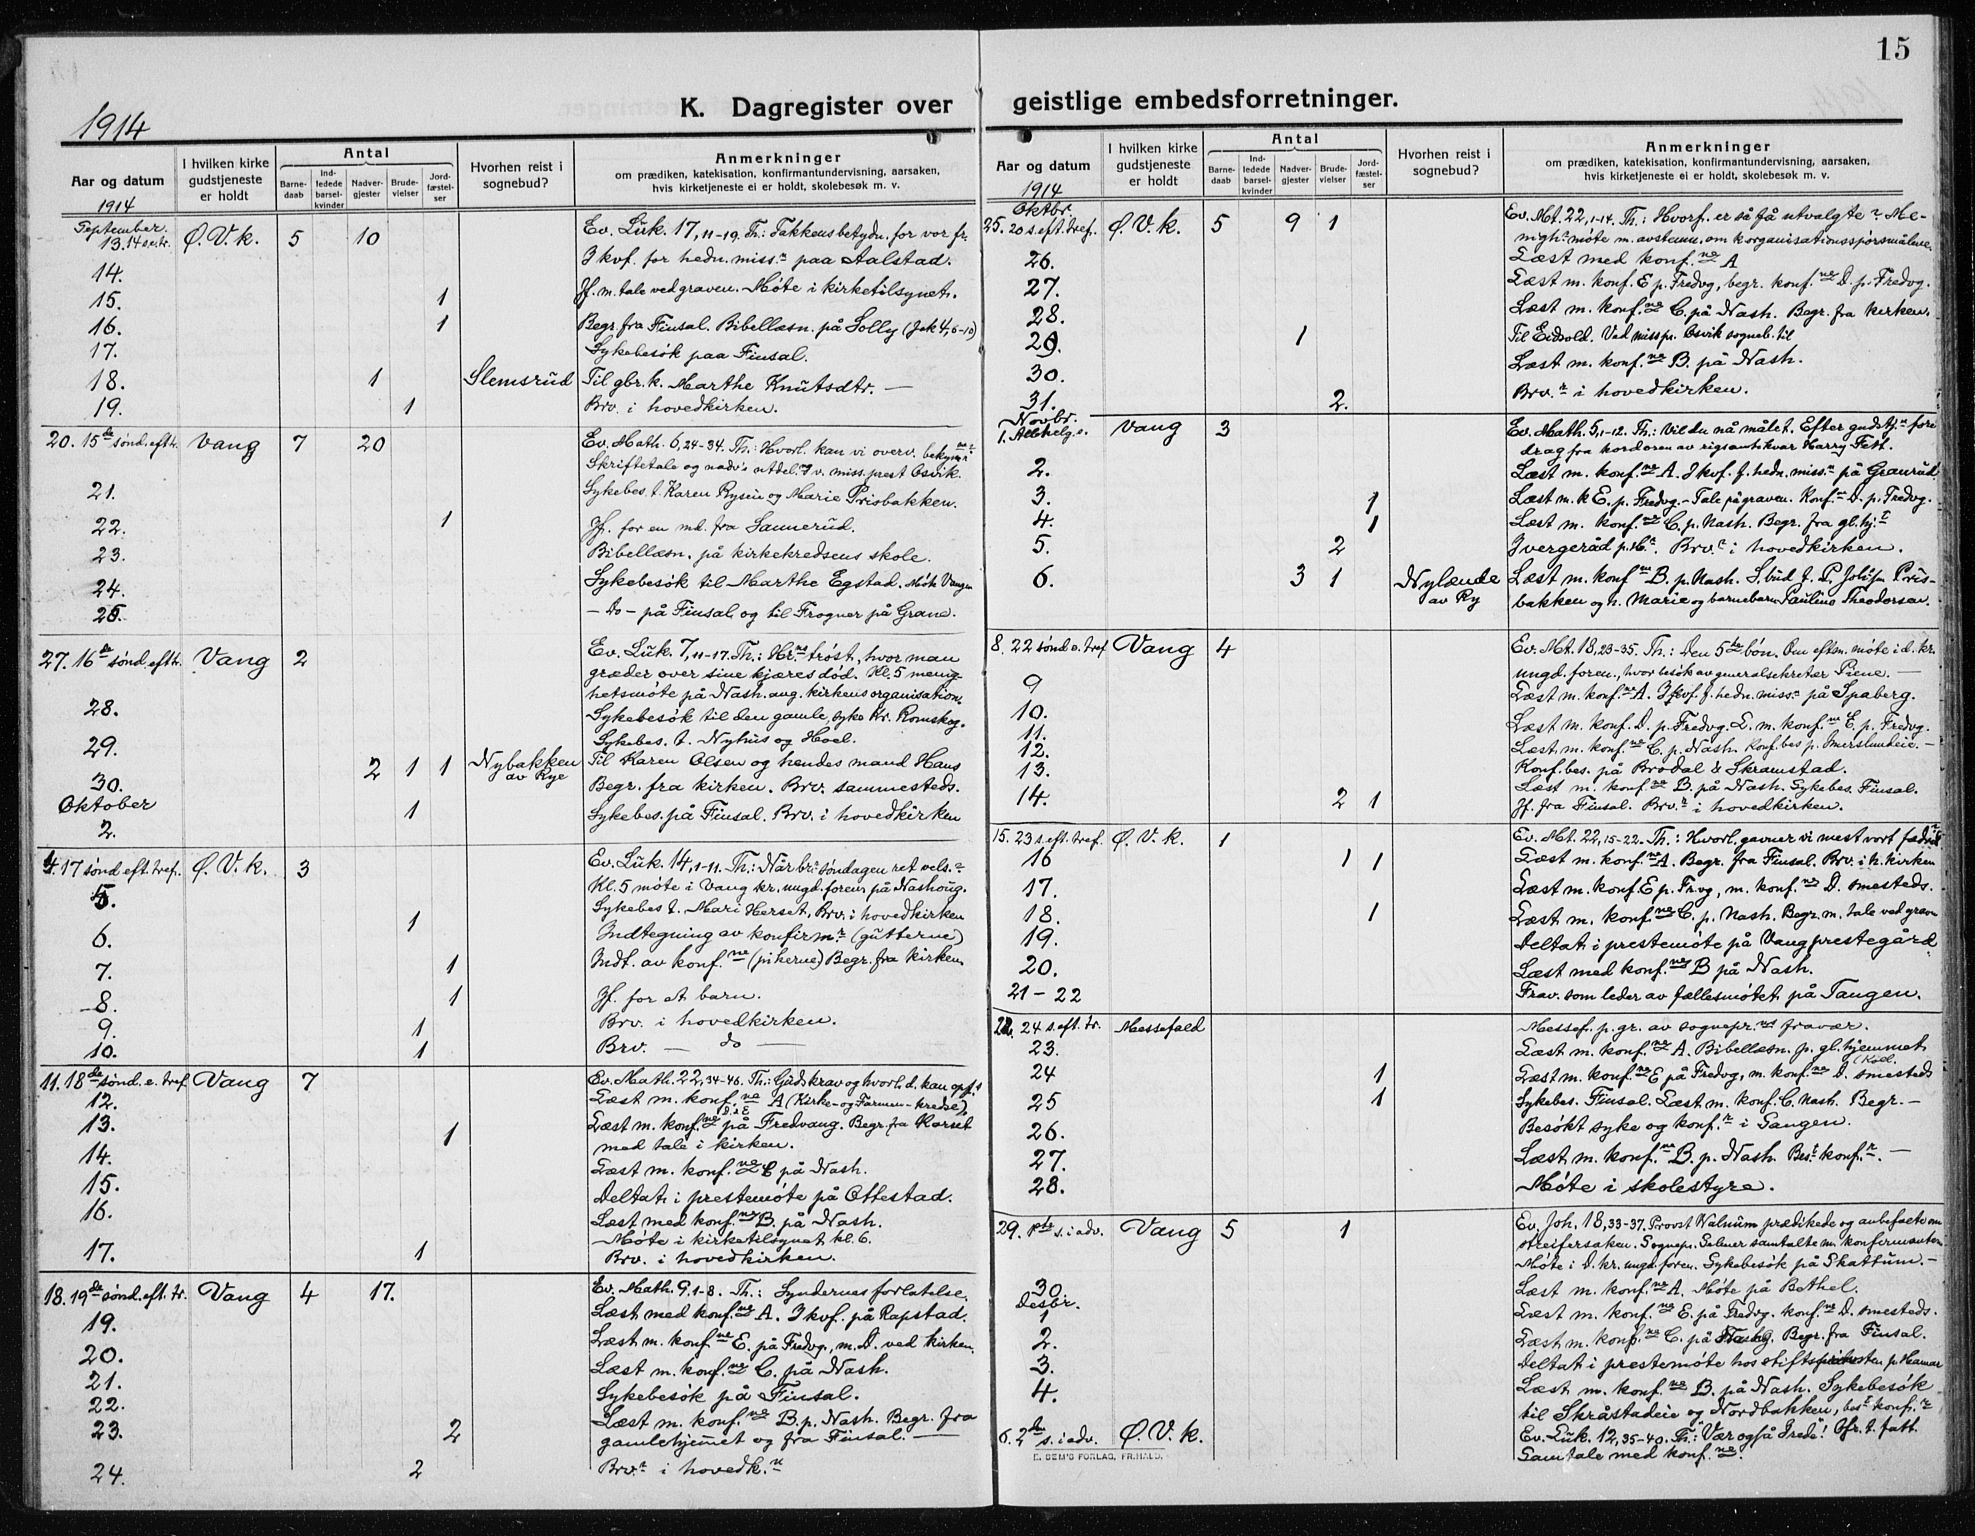 15
1914
K. Dagregister over geistlige embedsforretninger.
Aar og datum
I hvilken kirke gudstjeneste er holdt
Antal
Barnedaab
Indledede barselkvinder
Nadvergjester
Brudevielser
Jordfæstelser
Hvorhen reist i sognebud?
Anmerkninger
om prædiken, katekisation, konfirmantundervisning, aarsaken,
hvis kirketjeneste ei er holdt, skolebesøk m. v.
1914
September
13. 14 s.e.tr. Ø.V.k. 5 10 Ev. Luk. 17,11-19. Th.: Takkens betydn. for vor fr.
14. I kvf. for hedn. miss.n paa Aalstad.
15. 1 Jf. m. tale ved graven. Møte i kirketilsynet.
16. 1 Begr. fra Finsal. Bibellæsn. på Solly (Jak 4,6-10)
17. Sykebesøk paa Finsal.
18. 1 Slemsrud Til gbr.k. Marthe Knutsdtr. —
19. 1 Brv. i hovedkirken.
20. 15de sønd. eftr. Vang 7 20 Ev. Math. 6,24-34. Th.: Hvorl. kan vi overv. bekymr.
Skriftetale og nadv's utdel. v. miss.prest Osvik.
21. Sykebes. t. Karen Rysein og Marie Priobakken.
22. 1 Jf. for en md. fra Sannerud.
23. Bibellæsn. på kirkekredsens skole.
24. Sykebesøk til Marthe Egstad. Møte Vangen
25. — Do — på Finsal og til Frogner på Grane.
27. 16de sønd. eftr. Vang 2 Ev. Luk. 7,11-17. Th.: Hr.ns trøst, hvor man
græder over sine kjæres død. Kl. 5 menig-
hetsmøte på Nash. ang. kirkens organisation.
28. Sykebesøk til den gamle, syke Kr. Romskog.
29. Sykebes. t. Nyhus og Hoel.
30. 2 1 1 Nybakken av Rye Til Karen Olsen og hendes mand Hans
Begr. fra kirken. Brv. sammesteds.
Oktober
2. 1 Sykebes. på Finsal. Brv. i hovedkirken
4. 17 sønd eft. tref. Ø.V.k. 3 Ev. Luk. 14,1-11. Th.: Når br. søndagen ret vels.n
Kl. 5 møte i Vang kr. ungd.foren. på Nashoug.
5. 1 Sykebes t. Mari Herset, Brv. i hovedkirken
6. Indtegning av konfirm.r (gutterne)
7. 1 Indt. av konf.ne (pikerne) Begr. fra kirken
8. 1 Jf. for et barn.
9. 1 Brv. i hovedkirken.
10. 1 Brv. — do —
11. 18de sønd. e. tref. Vang 7 Ev. Math. 22,34-46. Th.: Guds krav og hvorl. d. kan opf.!
12. Læst m. konf.ne A (Kirke- og Farmen-kredse)
13. 1 Læst m. konf.ne D. & E på Fredvang. Begr. fra Korset
med tale i kirken.
14. Læst m. konf.ne C på Nash.
15. Deltat i prestemøte på Ottestad.
16. Læst med konf.ne B. på Nash.
Møte i kirketilsynet kl. 6.
17. 1 Brv. i hovedkirken.
18. 19de sønd. eft. tr. Vang 4 17. Ev. Math. 9,1-8. Th.: Syndernes forlatelse.
19. Læst med konf.ne A. I kvf. på Rapstad.
20. Læst m. konf.ne E. på Fredvg., m. D. ved kirken.
21. Læst m. konf.ne C. på Nash.
22. Sykebesøk på Finsal.
23. 2 Læst m. konf.ne B. p. Nash. Begr. fra
gamlehjemmet og fra Finsal. —
24. 2 Brv.r i hovedk.n
Aar og datum
I hvilken kirke gudstjeneste er holdt
Antal
Barnedaab
Indledede barselkvinder
Nadvergjester
Brudevielser
Jordfæstelser
Hvorhen reist i sognebud?
Anmerkninger
om prædiken, katekisation, konfirmantundervisning, aarsaken,
hvis kirketjeneste ei er holdt, skolebesøk m. v.
1914
Oktbr.
25. 20 s. eft. tref. Ø.V.k. 5 9 1 Ev. Mt. 22,1-14. Th.: Hvorf. er så få utvalgte? Me-
nigh.s møte m. avstemn. om k.organisationsspørsmålene.
26. Læst med konf.ne A
27. Læst m. konf. E p. Fredvg, begr. konf.ne D. p. Fredvg.
28. Læst m. konf.ne C. på Nash. Begr. fra kirken.
29. 1 Til Eidsvold. Ved miss.pr. Osvik sogneb. til
30. Læst m. konf.ne B. på Nash.
31. 2. Brv.r i hovedkirken.
Novbr.
1. Allehelg.s. Vang 3 Ev. Math. 5,1-12. Th.: Vil du nå målet. Efter gudstj.n fore
drag fra kordøren av rigsantikvar Harry Fett.
2. Læst m. konf.ne A. I kvf. f. hedn. miss.n på Granrud
3. 1 Læst m. k E. p. Fredvg. – Tale på graven. Konf.ne D. p. Fredvg.
4. 1 Læst m. konf.ne C. p. Nash. Begr. fra gl.hj.t
5. 2 I vergeråd p. Hr. Brv.r i hovedkirken.
6. 3 1 Nylænde av Ry Læst m. konf.ne B. p. Nash. S.bud t. P. Johs'n Priis-
bakken og h. Marie og barnebarn Pauline Theodorsen.
8. 22 sønd e. tref Vang 4 Ev. Mt. 18,23-35. Th.: Den 5te bøn. Om eftm. møte i d. kr.
ungd.foren., hvor besøk av generalsekretær Piene. —
9 Læst m. konf.ne A. I kvf. f. hedn. miss.n på Spaberg.
10. Læst m. konf. D. p. Fredvg. L. m. konf.ne E. p. Fredvg.
11. Læst m. konf.ne C. p. Nash. Konf.bes p. Imerslundeie. —
12.
13. Konf.bes. på Brodal & Skramstad.
14. 2 1 Læst m. konf.ne B. på Nash. Sykebes. Finsal.
Jf. fra Finsal. Brv.r i hovedkirken.
15. 23 s. eft. tref. Ø.V.k. 1 Ev. Mt. 22,15-22. Th.: Hvorl. gavner vi mest vort fædrel.
16 1 1 Læst m. konf.ne A. Begr. fra Finsal. Brv. i h. kirken
17. Læst m. konf. E p. Frvg, m. konf.ne D. smesteds.
18. 1 Læst m. konf.ne C. p. Nash. Begr. m. tale ved graven
19. Deltat i prestemøte på Vang prestegård
20. Læst med konf.ne B på Nash.
21–22 Frav. som leder av fællesmøtet på Tangen.
22. 24 s. eft. tr. Messefald Messef. p. gr. av sognepr.ns fravær.
23. Læst m. konf.ne A. Bibellæsn. p. gl.hjemmet
24 1 Læst m. konf.ne E på Fredvg, m. konf.ne D. smesteds
25 1 Sykebes. Finsal. Læst m. konf. C. Nash. Begr. –
26. Besøkt syke og konf.r i Gangen.
27. Læst m. konf.ne B. p. Nash. Bes.t konf.r. —
28. Møte i skolestyre.
29. 1ste s. i adv. Vang 5 1 Ev. Joh. 18,33-37. Provst Walnum prædikede og anbefalte om
streifersaken. Sognepr. Selmer samtalte m. konfirmanten
Møte i D. kr. ungd.foren. Sykebesøk på Skattum. —
30. Læst m. konf.ne A. Møte på Bethel.
Desbr.
1 Læst m. konf.ne E. på Fredvg. konf.ne D. smesteds.
2. Læst m. konf.ne C. på Nashg. Begr. fra Finsal.
3. Deltat i prestemøte hos stiftsprovsten p. Hamar
4. Læst m. konf.ne B. på Nash. Sykebesøk
til Skråstadeie og Nordbakken, bes.t konf.r
6. 2den s. i adv. Ø.V.k. Ev. Luk. 12,35-40. Th.: Vær også I rede! Ofr. t. fatt.
Samtale med konf.ne.
E. SEM'S FORLAG, FR.HALD.